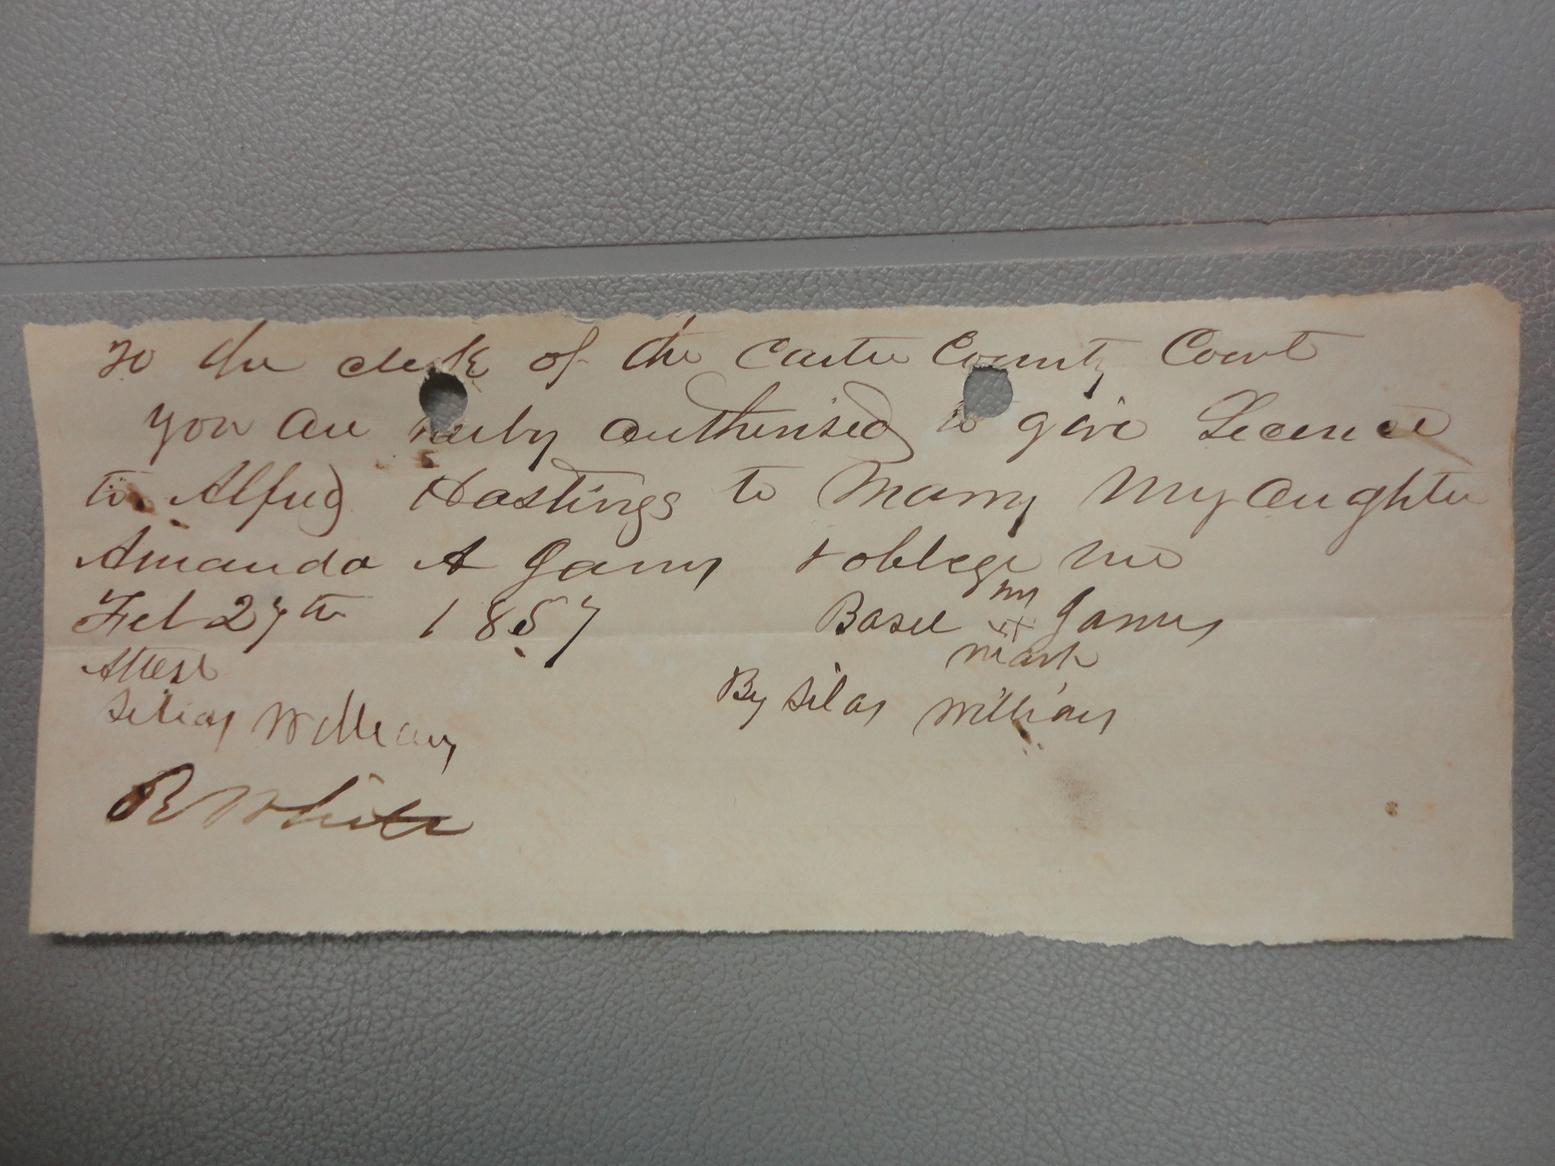 To the clerk of the Carter County Court
you are herby authorised to give Licence
to Alfred Hastings to Marry My aughter
Amanda A Jarvis & oblege me
Feb 27th 1857 Basel my Jarvis
x
mark
Attest By Silas Williams
Silias William
R White